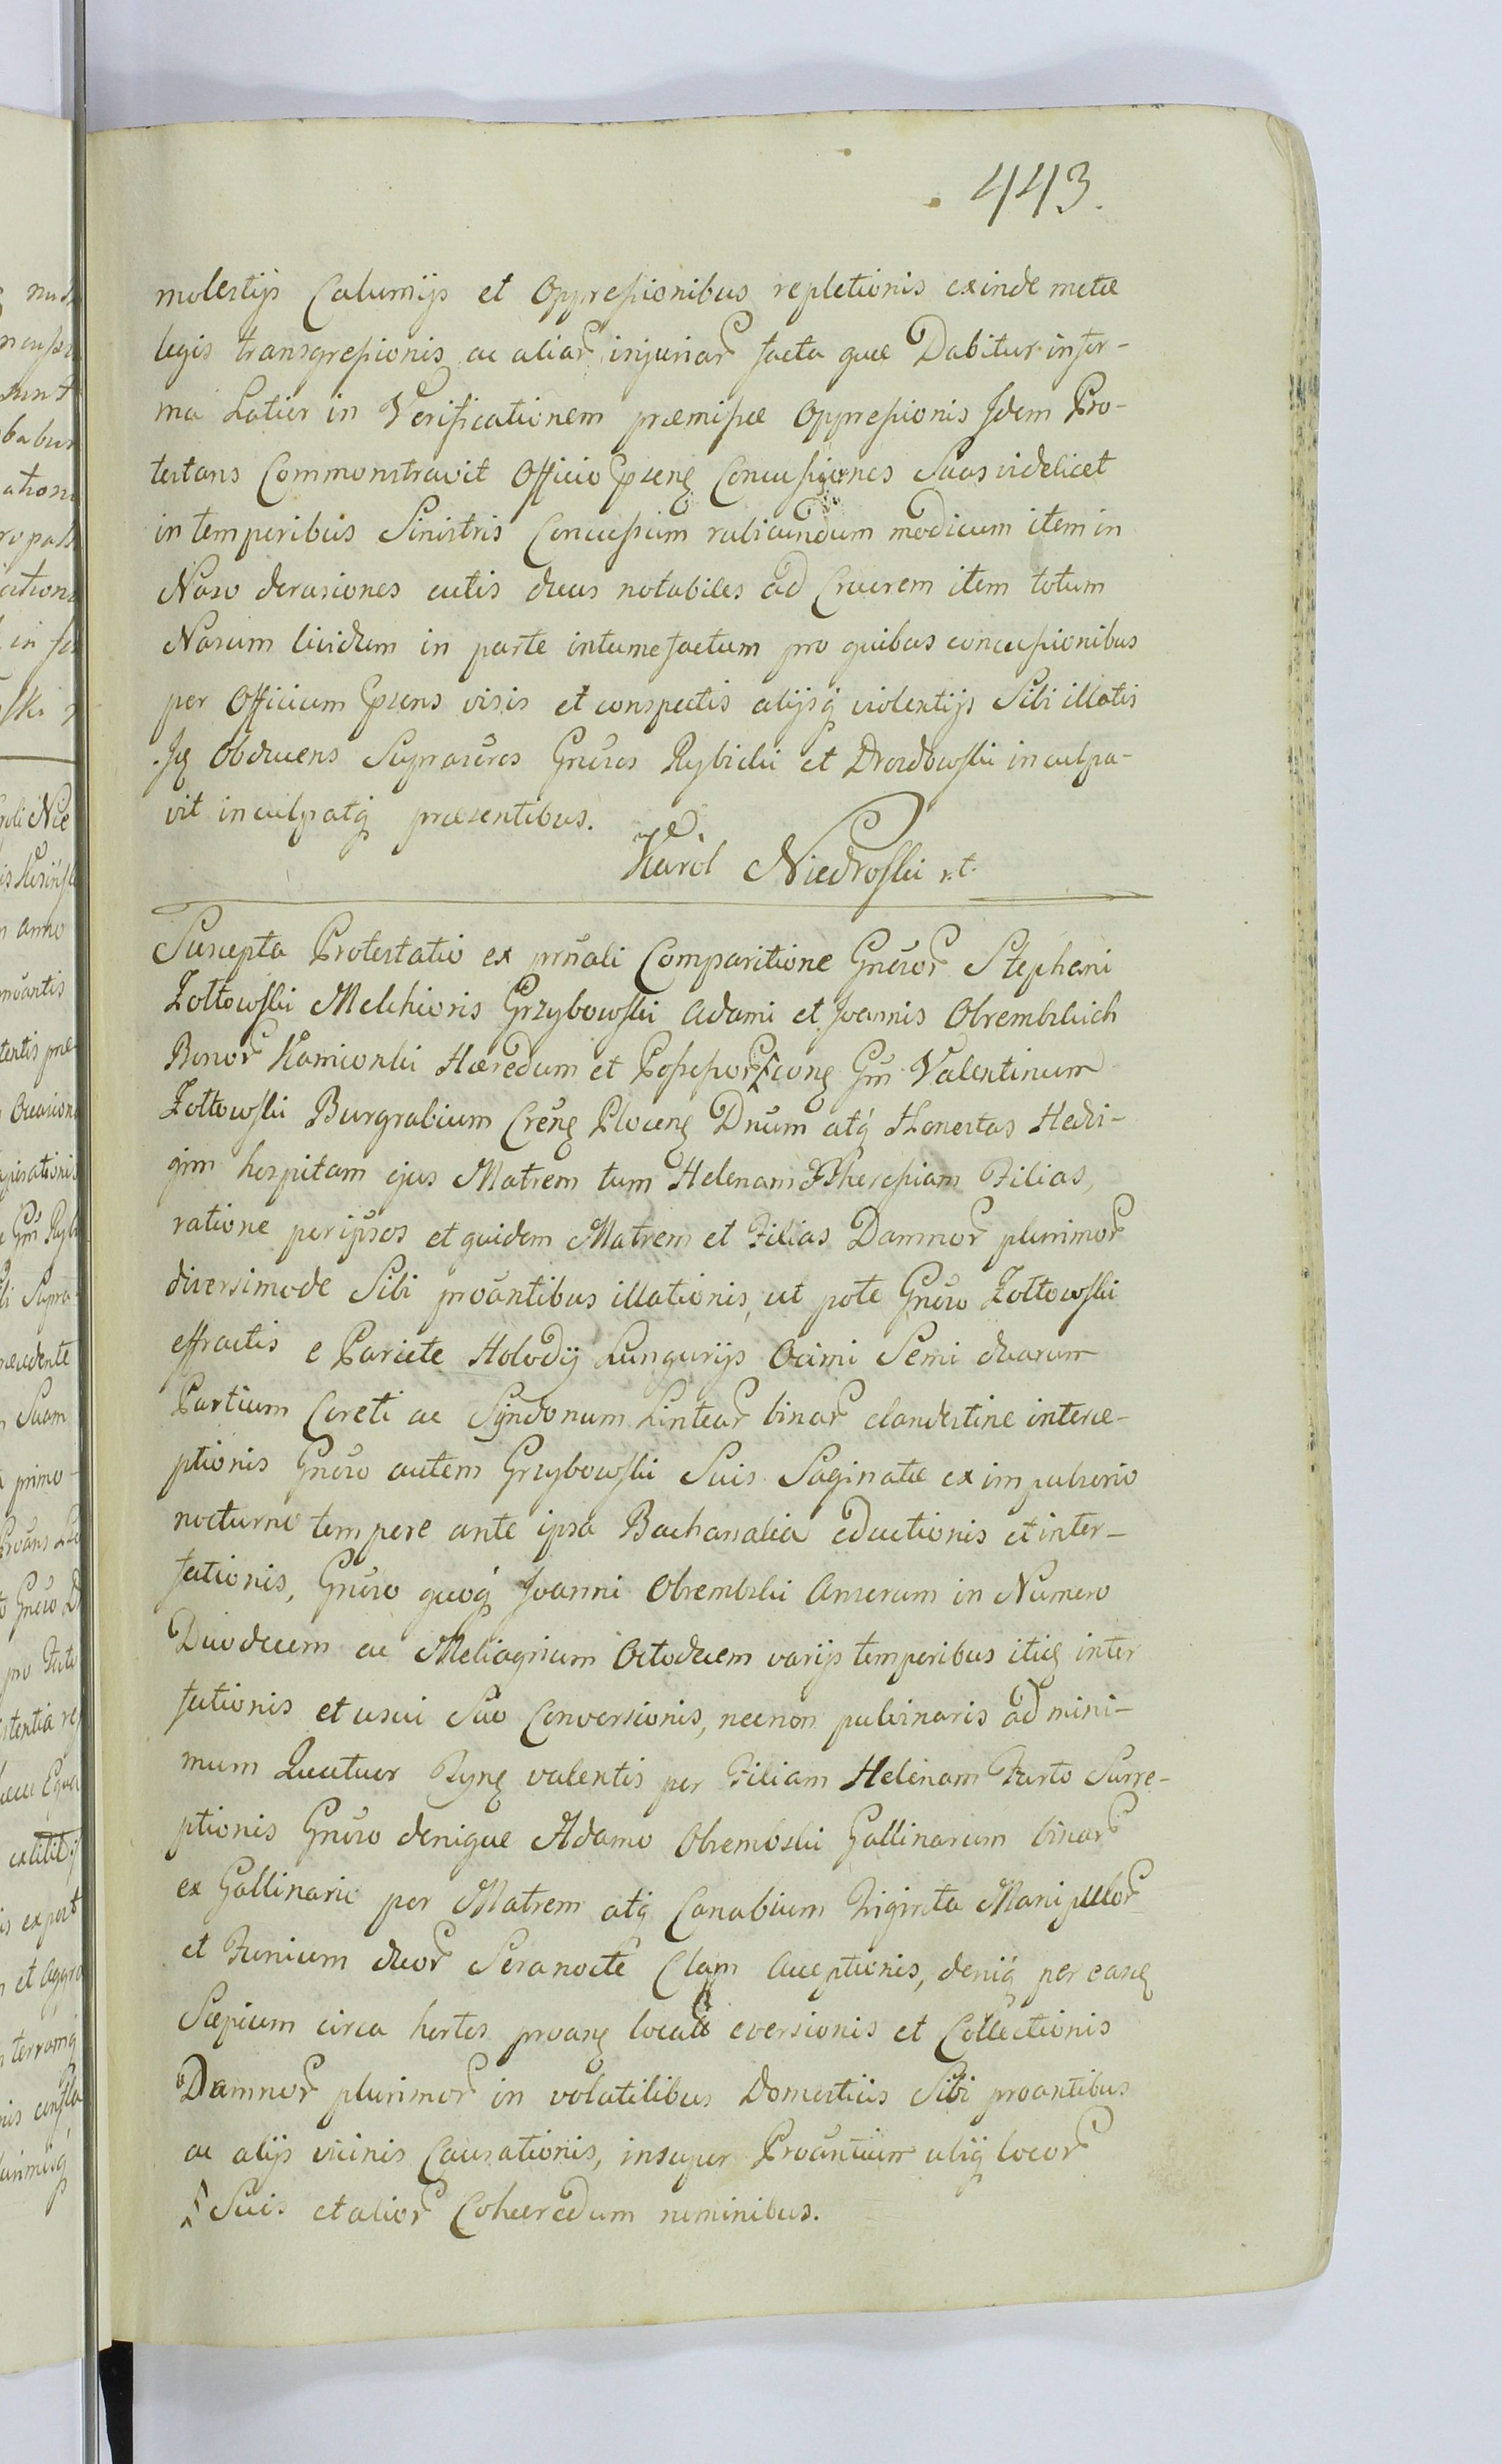 443.
molestijs Calumijs et Oppressionibus repletionis exinde metæ
legis transgressionis ac aliar injuriar facta quæ Dabitur infor-
ma Latior in Verificationem præmissæ Oppressionis Idem Pro-
testans Commonstravit Officio Psenq Concussiones Suas videlicet
in temporibus Sinistris Concussum rubicundum modicum item in
Naso derasiones cutis duas notabiles ad Cruorem item totum
Nasum lividum in parte intumefactum pro quibus concussionibus
per Officium Psens visis et conspectis alijsq violentijs Sibi illatis
Iq Obducens Suprascros Gnrsos Rybicki et Drozdowski inculpa-
vit inculpatq præsentibus.
Karol Niedroski rt.
Suscepta Protestatio ex prsñali Comparitione Gnrsor Stephani
Zołtowski Melchioris Grzybowski Adami et Joannis Obrembskich
Bonor Kamionki Hæredum et Possessor cong Gm Valentinum
Zołtowski Burgrabium Creñq Plocenq Dnum atq Honestas Hedvi-
gim hospitam ejus Matrem tum Helenam & Theressiam Filias,
ratione per ipsos et quidem Matrem et Filias Damnor plurimor
diversimode Sibi proantibus illationis, ut pote Gnrso Zołtowski
effractis e Pariete Holodij Lungurijs Ocimi Semi duarum
Partium Coreti ac Syndonum Lintear binar clandestine interce-
ptionis Gnrso autem Grzybowski Suis Saginatæ ex impulsorio
nocturno tempore ante ipsa Bachanalia eductionis et inter-
fationis, Gnrso quoq Joanni Obrembski Anserum in Numero
Duodecem ac Meliagrium Octodecem varijs temporibus itiq inter
fationis et usui Suo Conversionis, necnon pulvinaris ad mini-
mum Quatuor Rynq valentis per Filiam Helenam Furto Surre-
ptionis Gnrso denique Adamo Obrembski Gallinarum binar
ex Gallinario per Matrem atq Canabium Triginta Manipulor
et Funium duor Sera nocte Clam Acceptionis, deniq per easq
Sæpium circa hortos proanq locat eversionis et Collectionis
Damnor plurimor in volatilibus Domesticis Sibi proantibus
ac alijs vicinis Causationis, insuper Proantium aliq locor
Suis et alior Cohæredum nominibus.